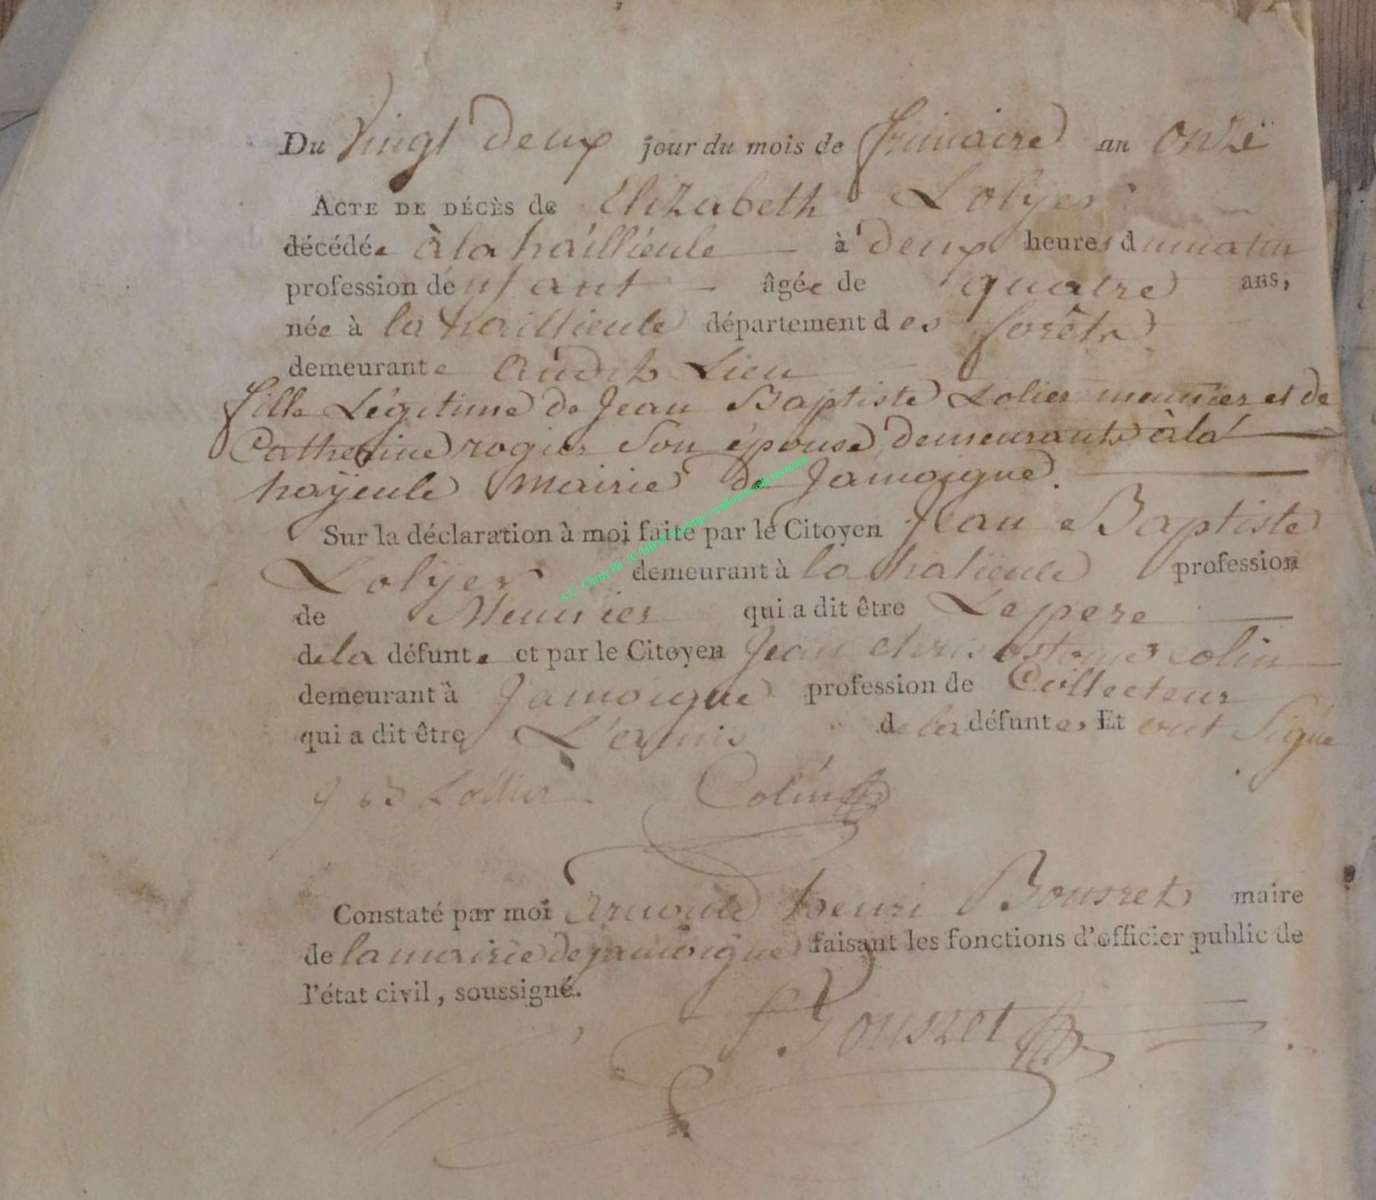 Du Vingt deux jour du mois de frimaire an onze
ACTE DE DÉCÈS de Elizabeth Lolyer
décédée à la haillieule à deux heures du matin
profession denfant âgée de quatre ans,
née à la haillieule département des forêts
demeurante audit Lieu
fille Légitime de Jean Baptiste Lolier meunier et de
Catherine rogier Son épouse demeurants à la
hayeule Mairie de Jamoigne.
Sur la déclaration à moi faite par le Citoyen Jean Baptiste
Lolyer demeurant à la halieule profession
de Meunier qui a dit être Le pere
de la défunte et par le Citoyen Jean chrisostome colin
demeurant à Jamoigne profession de Collecteur
qui a dit être L'ermis de la défunte Et ont Signé
J B Lollier Colin
Constaté par moi arnould henri Bousret maire
de la mairie de jamoigne faisant les fonctions d'officier public de
l'état civil, soussigné.
Bousret